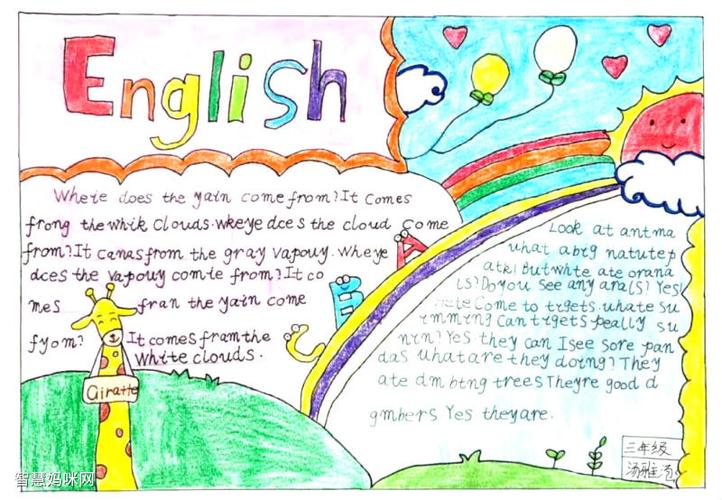 English
Wheie does the yain come from? It Comes
frong the whik Clouds. wkeye dces the cloud come
from? It canas from the gray vapouy. wheye
dces the vapouy comie from? It co
mes fran the yain come
fyom? It comes fram the
white clouds.
Giraffe
A
B
C
Look at antma
what abtg natutep
atkl but white ate orana
ls? Do you see any arals? Yes!
Come to trgets. uhate su
imming Can trgets peally su
nin? Yes they can I see sore pan
das uhat are they doing? They
ate dm btng trees Theyre good d
gmbers Yes they are.
三年级
汤雅
智慧妈咪网